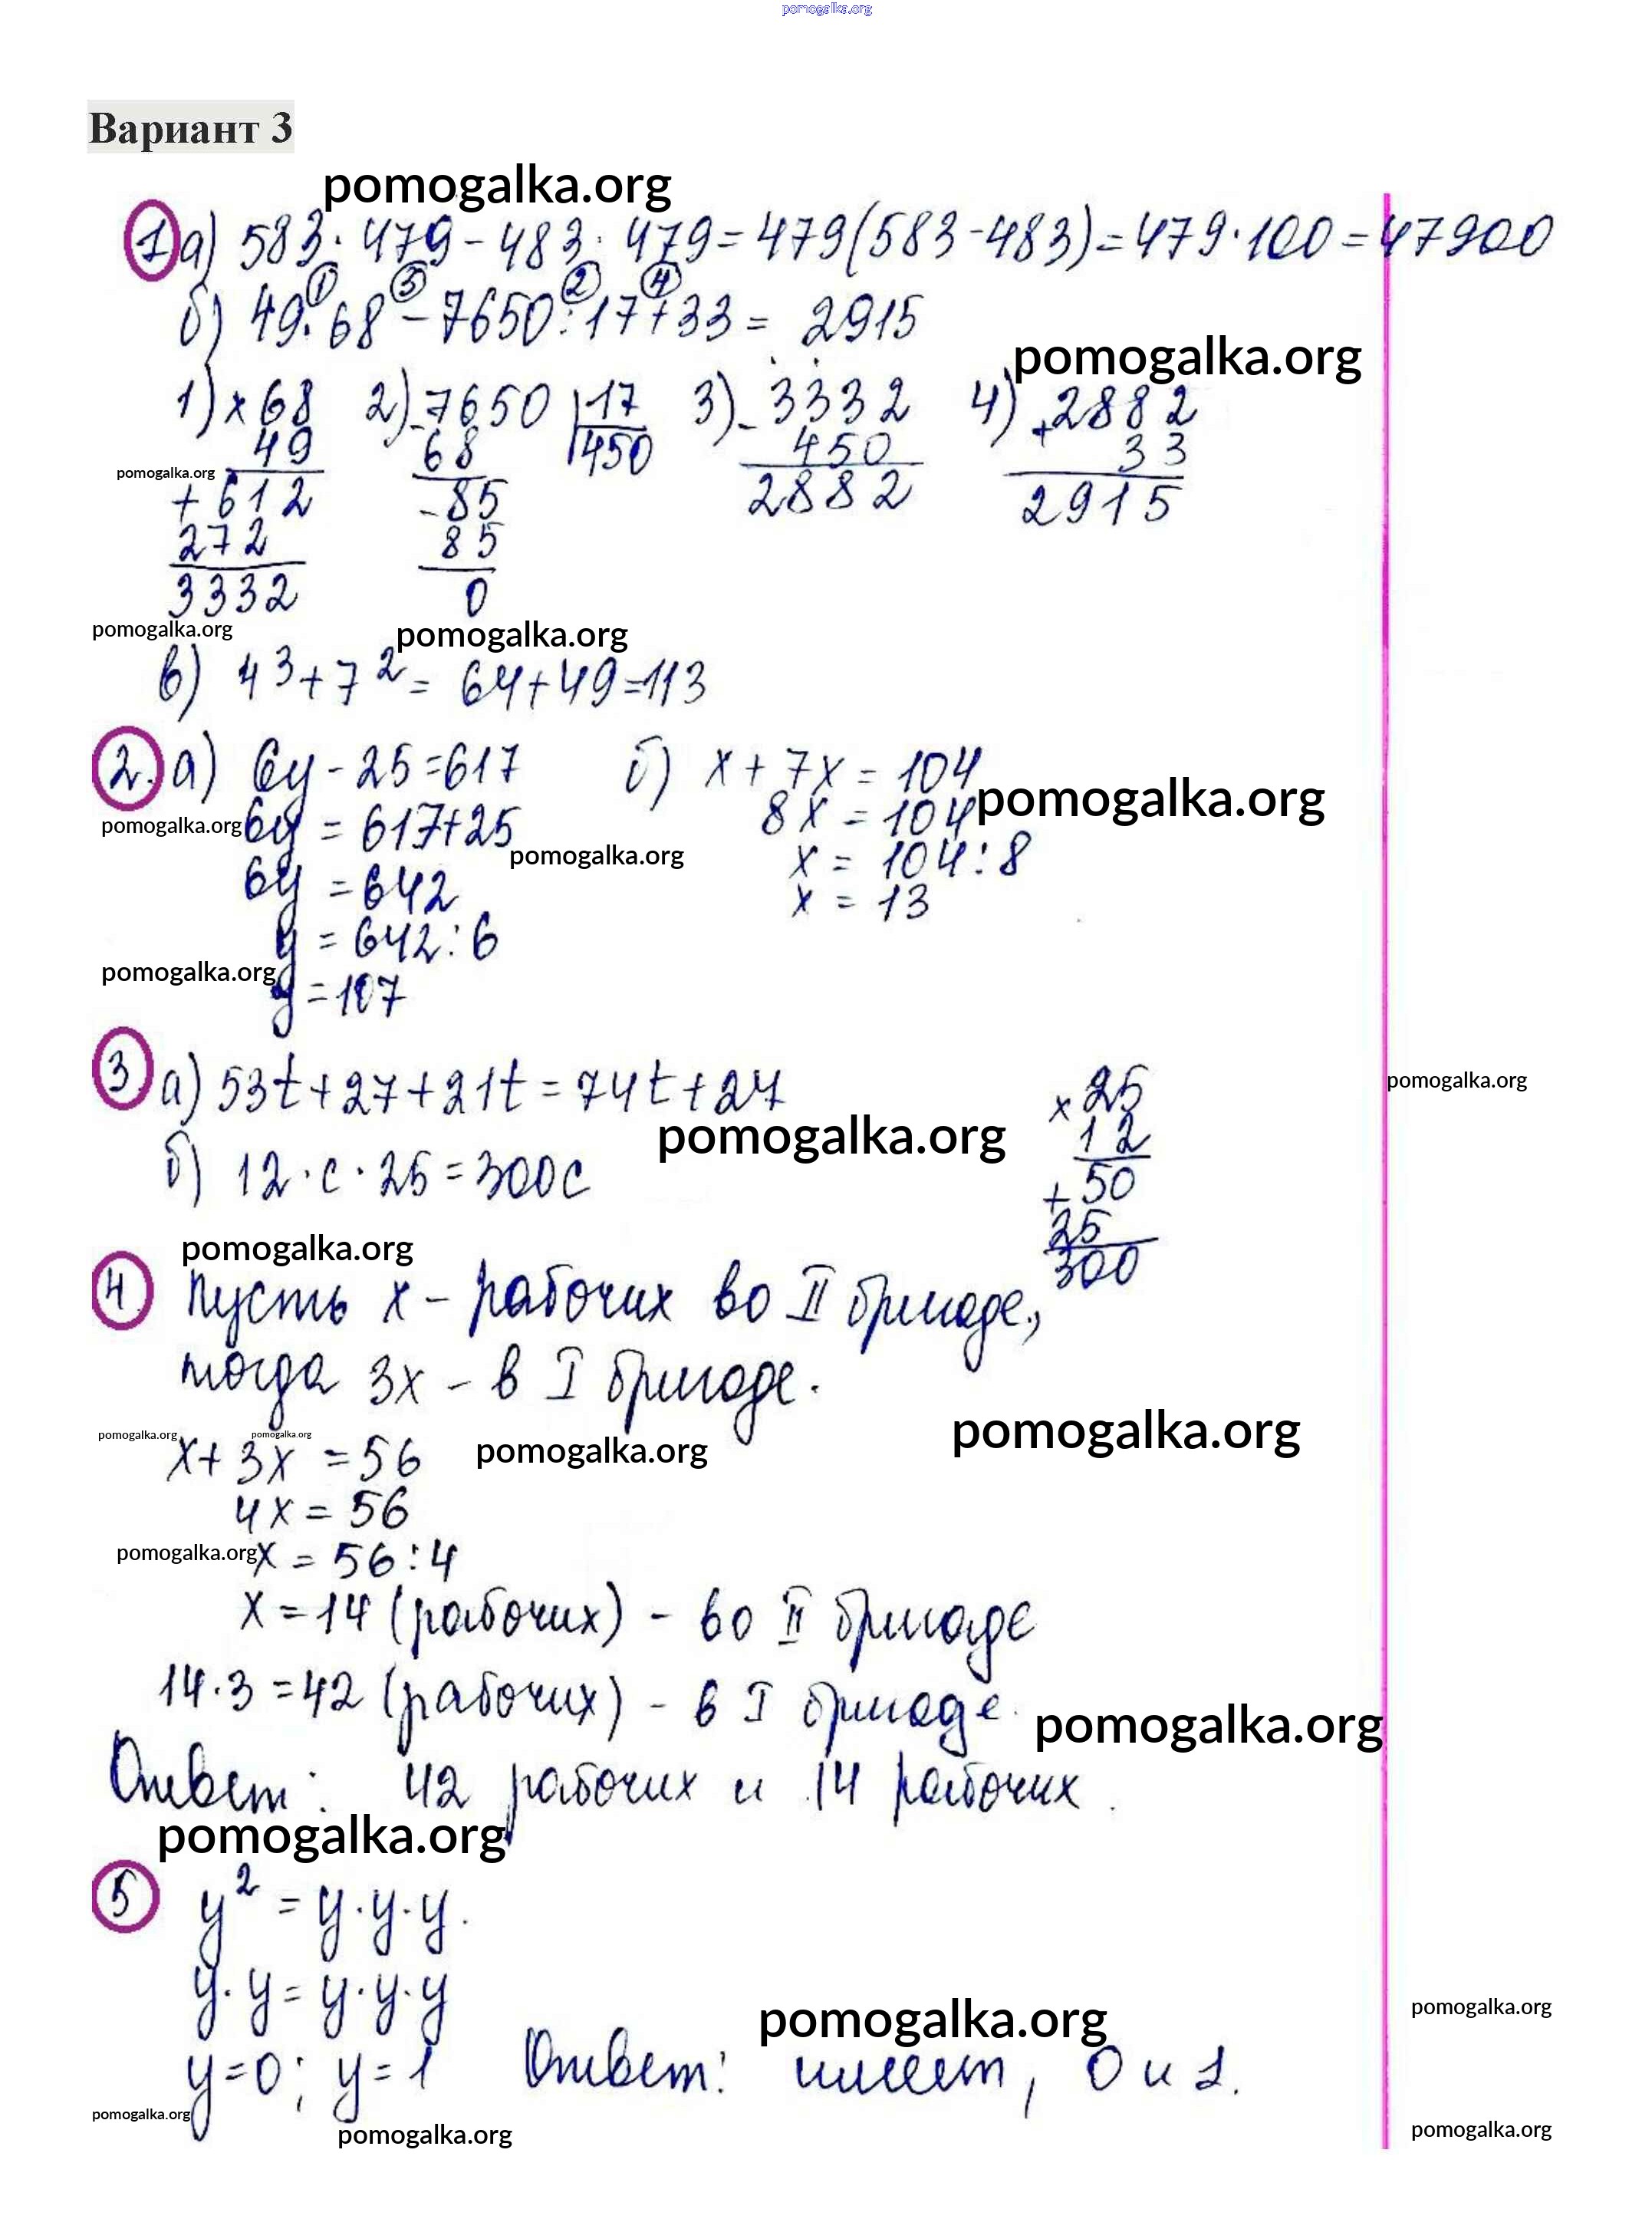 pomogalka.org
Вариант 3
pomogalka.org
1 а) 583 · 479 - 483 · 479 = 479(583-483) = 479 · 100 = 47900
① ③ ② ④
б) 49 · 68 - 7650 : 17 + 33 = 2915
pomogalka.org
1) × 68 2) - 7650 | 17 3) - 3332 4) + 2882
49 68 450 450 33
pomogalka.org
+ 612 - 85 2882 2915
272 85
3332 0
pomogalka.org pomogalka.org
в) 4³ + 7² = 64 + 49 = 113
2. а) 6y - 25 = 617 б) x + 7x = 104
pomogalka.org
pomogalka.org 6y = 617+25 8x = 104
pomogalka.org
6y = 642 x = 104 : 8
y = 642 : 6 x = 13
pomogalka.org
y = 107
3 а) 53t + 27 + 21t = 74t + 27 × 25
pomogalka.org
pomogalka.org 12
б) 12 · c · 25 = 300c + 50
25
pomogalka.org 300
4 Пусть x - рабочих во II бригаде,
тогда 3x - в I бригаде.
pomogalka.org pomogalka.org pomogalka.org pomogalka.org
x + 3x = 56
4x = 56
pomogalka.org x = 56 : 4
x = 14 (рабочих) - во II бригаде
14 · 3 = 42 (рабочих) - в I бригаде.
pomogalka.org
Ответ: 42 рабочих и 14 рабочих.
pomogalka.org
5 y² = y · y · y.
y · y = y · y · y
pomogalka.org pomogalka.org
y = 0; y = 1 Ответ: имеет, 0 и 1.
pomogalka.org pomogalka.org pomogalka.org